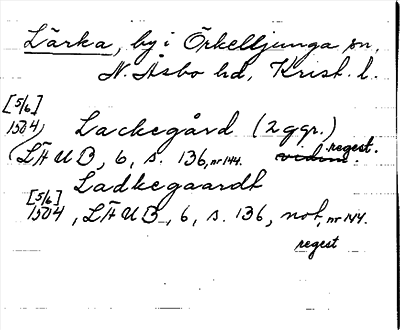 Lärka, by i Örkelljunga sn,
N. Åsbo hd, Krist. l.
[5/6]
1504, Lackegård (2 ggr.)
LÄUB, 6, s. 136, nr 144. vidim. regest.
Ladkegaardt
[5/6]
1504, LÄUB, 6, s. 136, not, nr 144.
regest